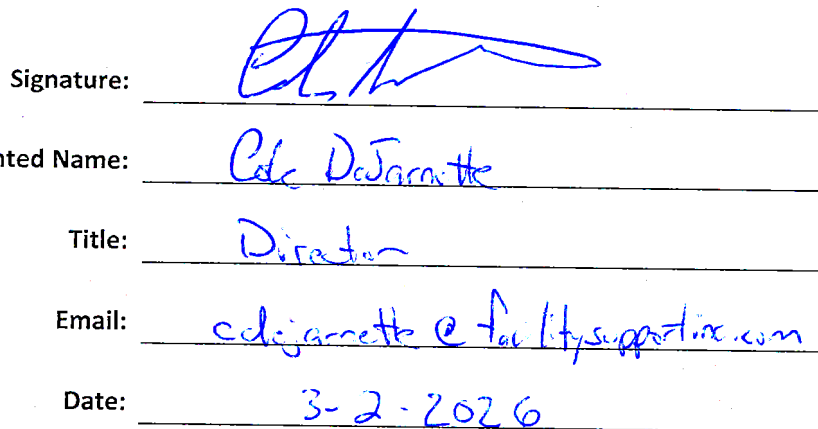 Signature:
nted Name: Cole DeJarnette
Title: Director
Email: cdejarnette@facilitysupportinc.com
Date: 3-2-2026